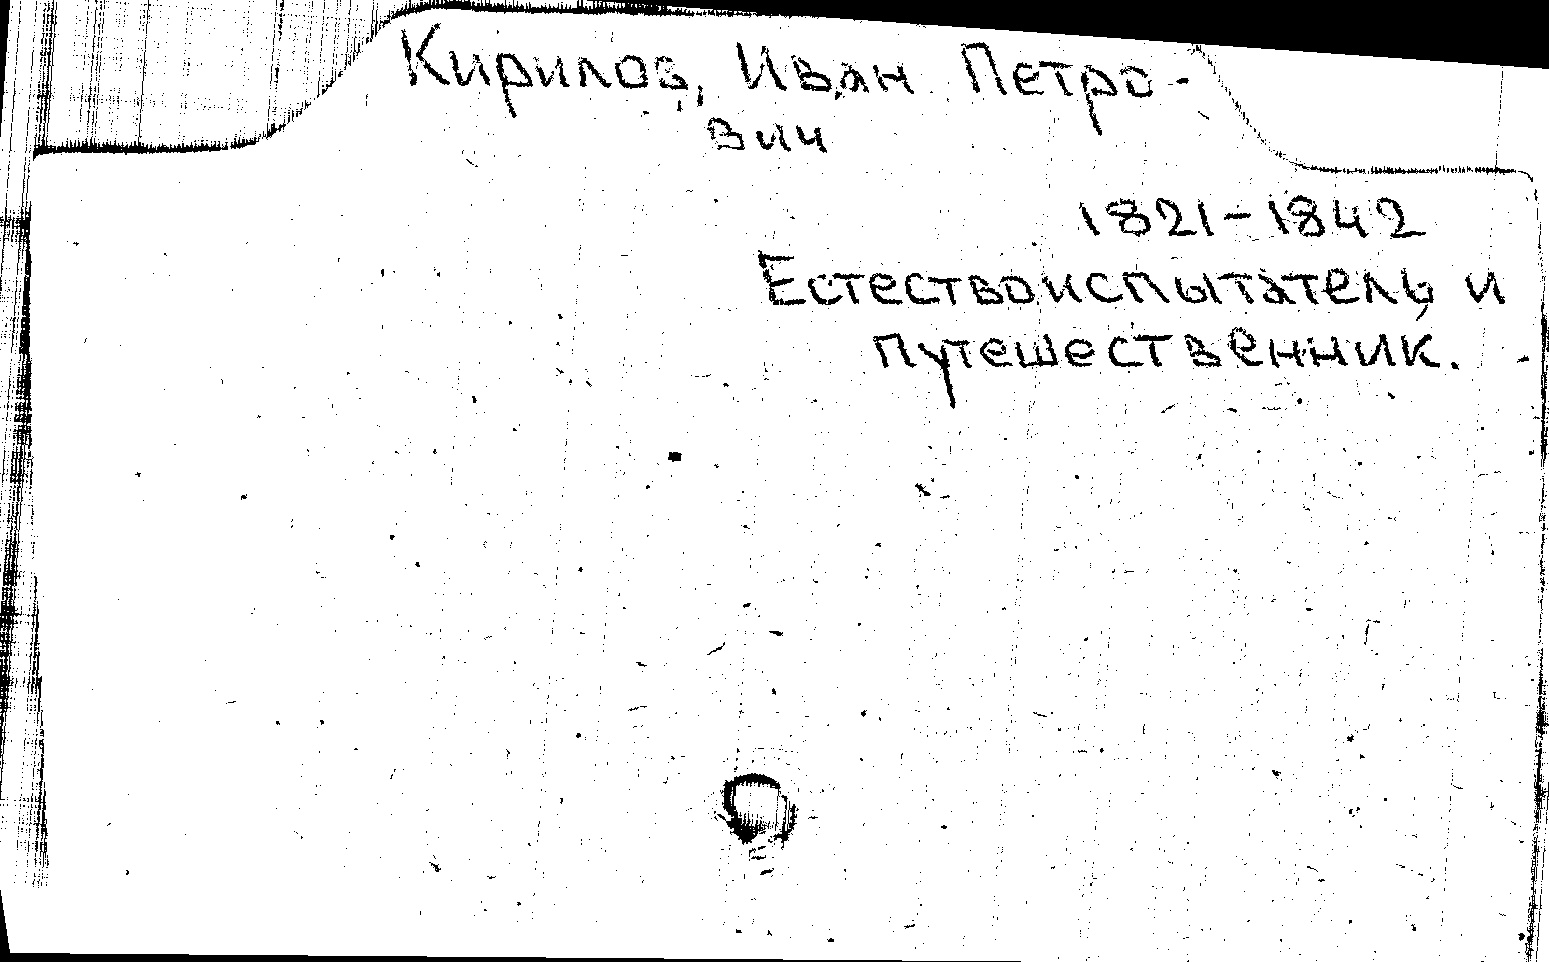 Кирилов, Иван Петро-
вич
1821-1842
Естествоиспытатель и
путешественник.